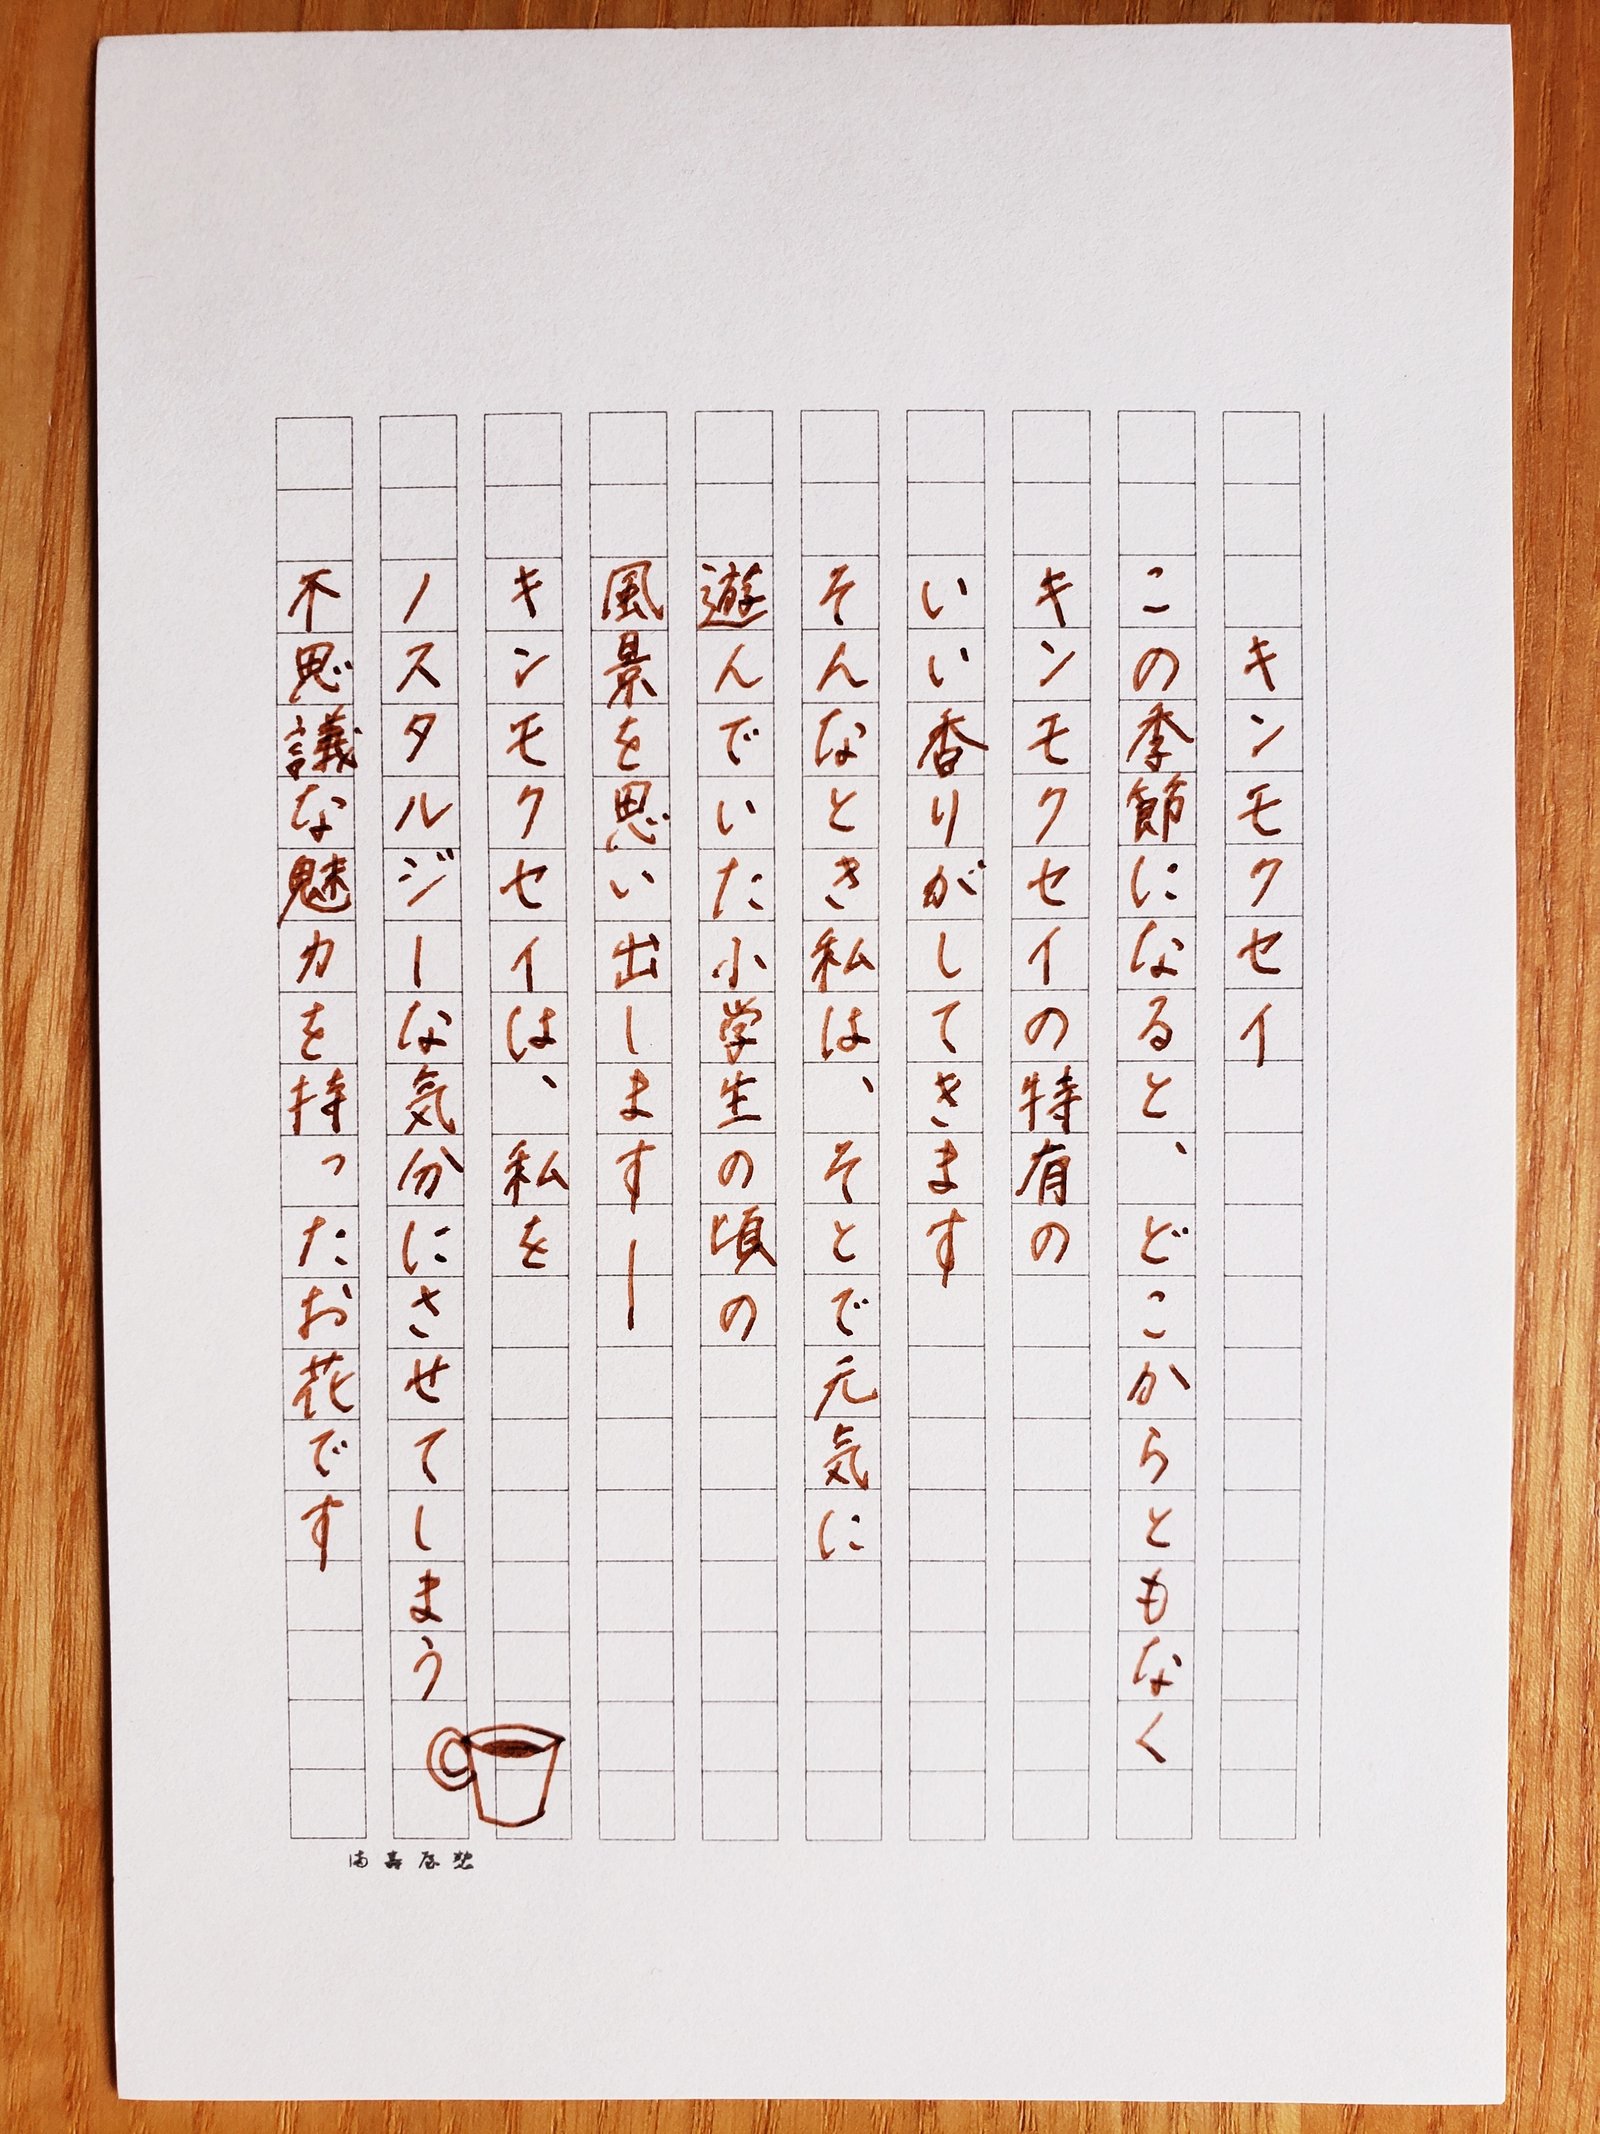 キンモクセイ
この季節になると、どこからともなく
キンモクセイの特有の
いい香りがしてきます
そんなとき私は、そとで元気に
遊んでいた小学生の頃の
風景を思い出します―
キンモクセイは、私を
ノスタルジーな気分にさせてしまう
不思議な魅力を持ったお花です
満寿屋製